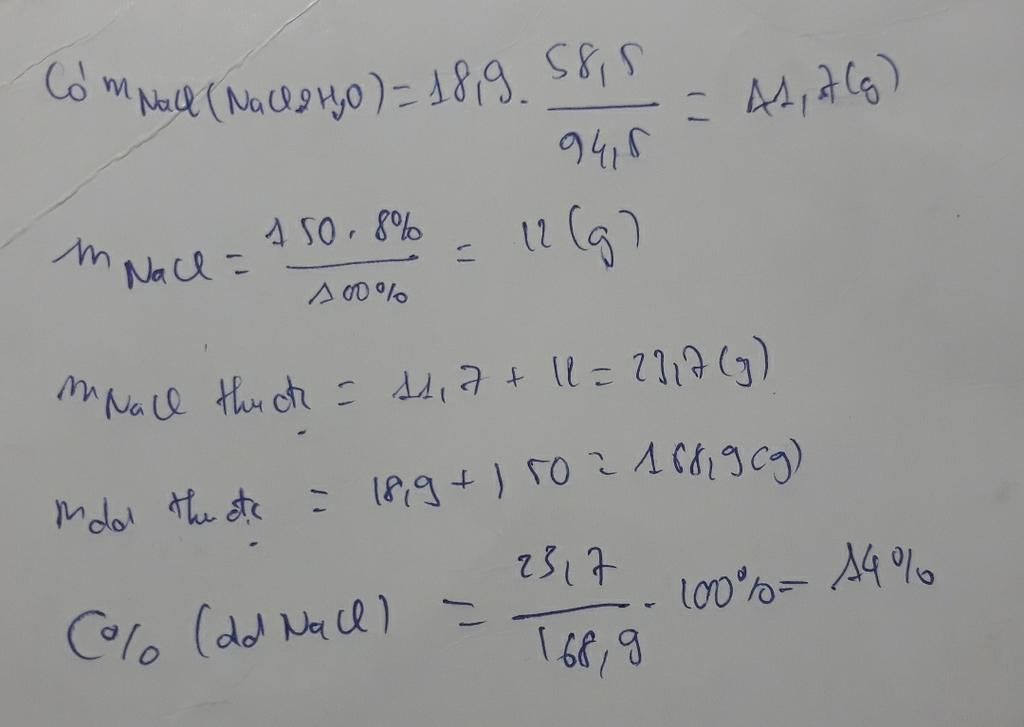 Có m NaCl (NaCl2H2O) = 18,9 . 58,5 / 94,5 = 11,7 (g)
m NaCl = 150 . 8% / 100% = 12 (g)
m NaCl thu đc = 11,7 + 12 = 23,7 (g)
m dd thu đc = 18,9 + 150 = 168,9 (g)
C% (dd NaCl) = 23,7 / 168,9 . 100% = 14%